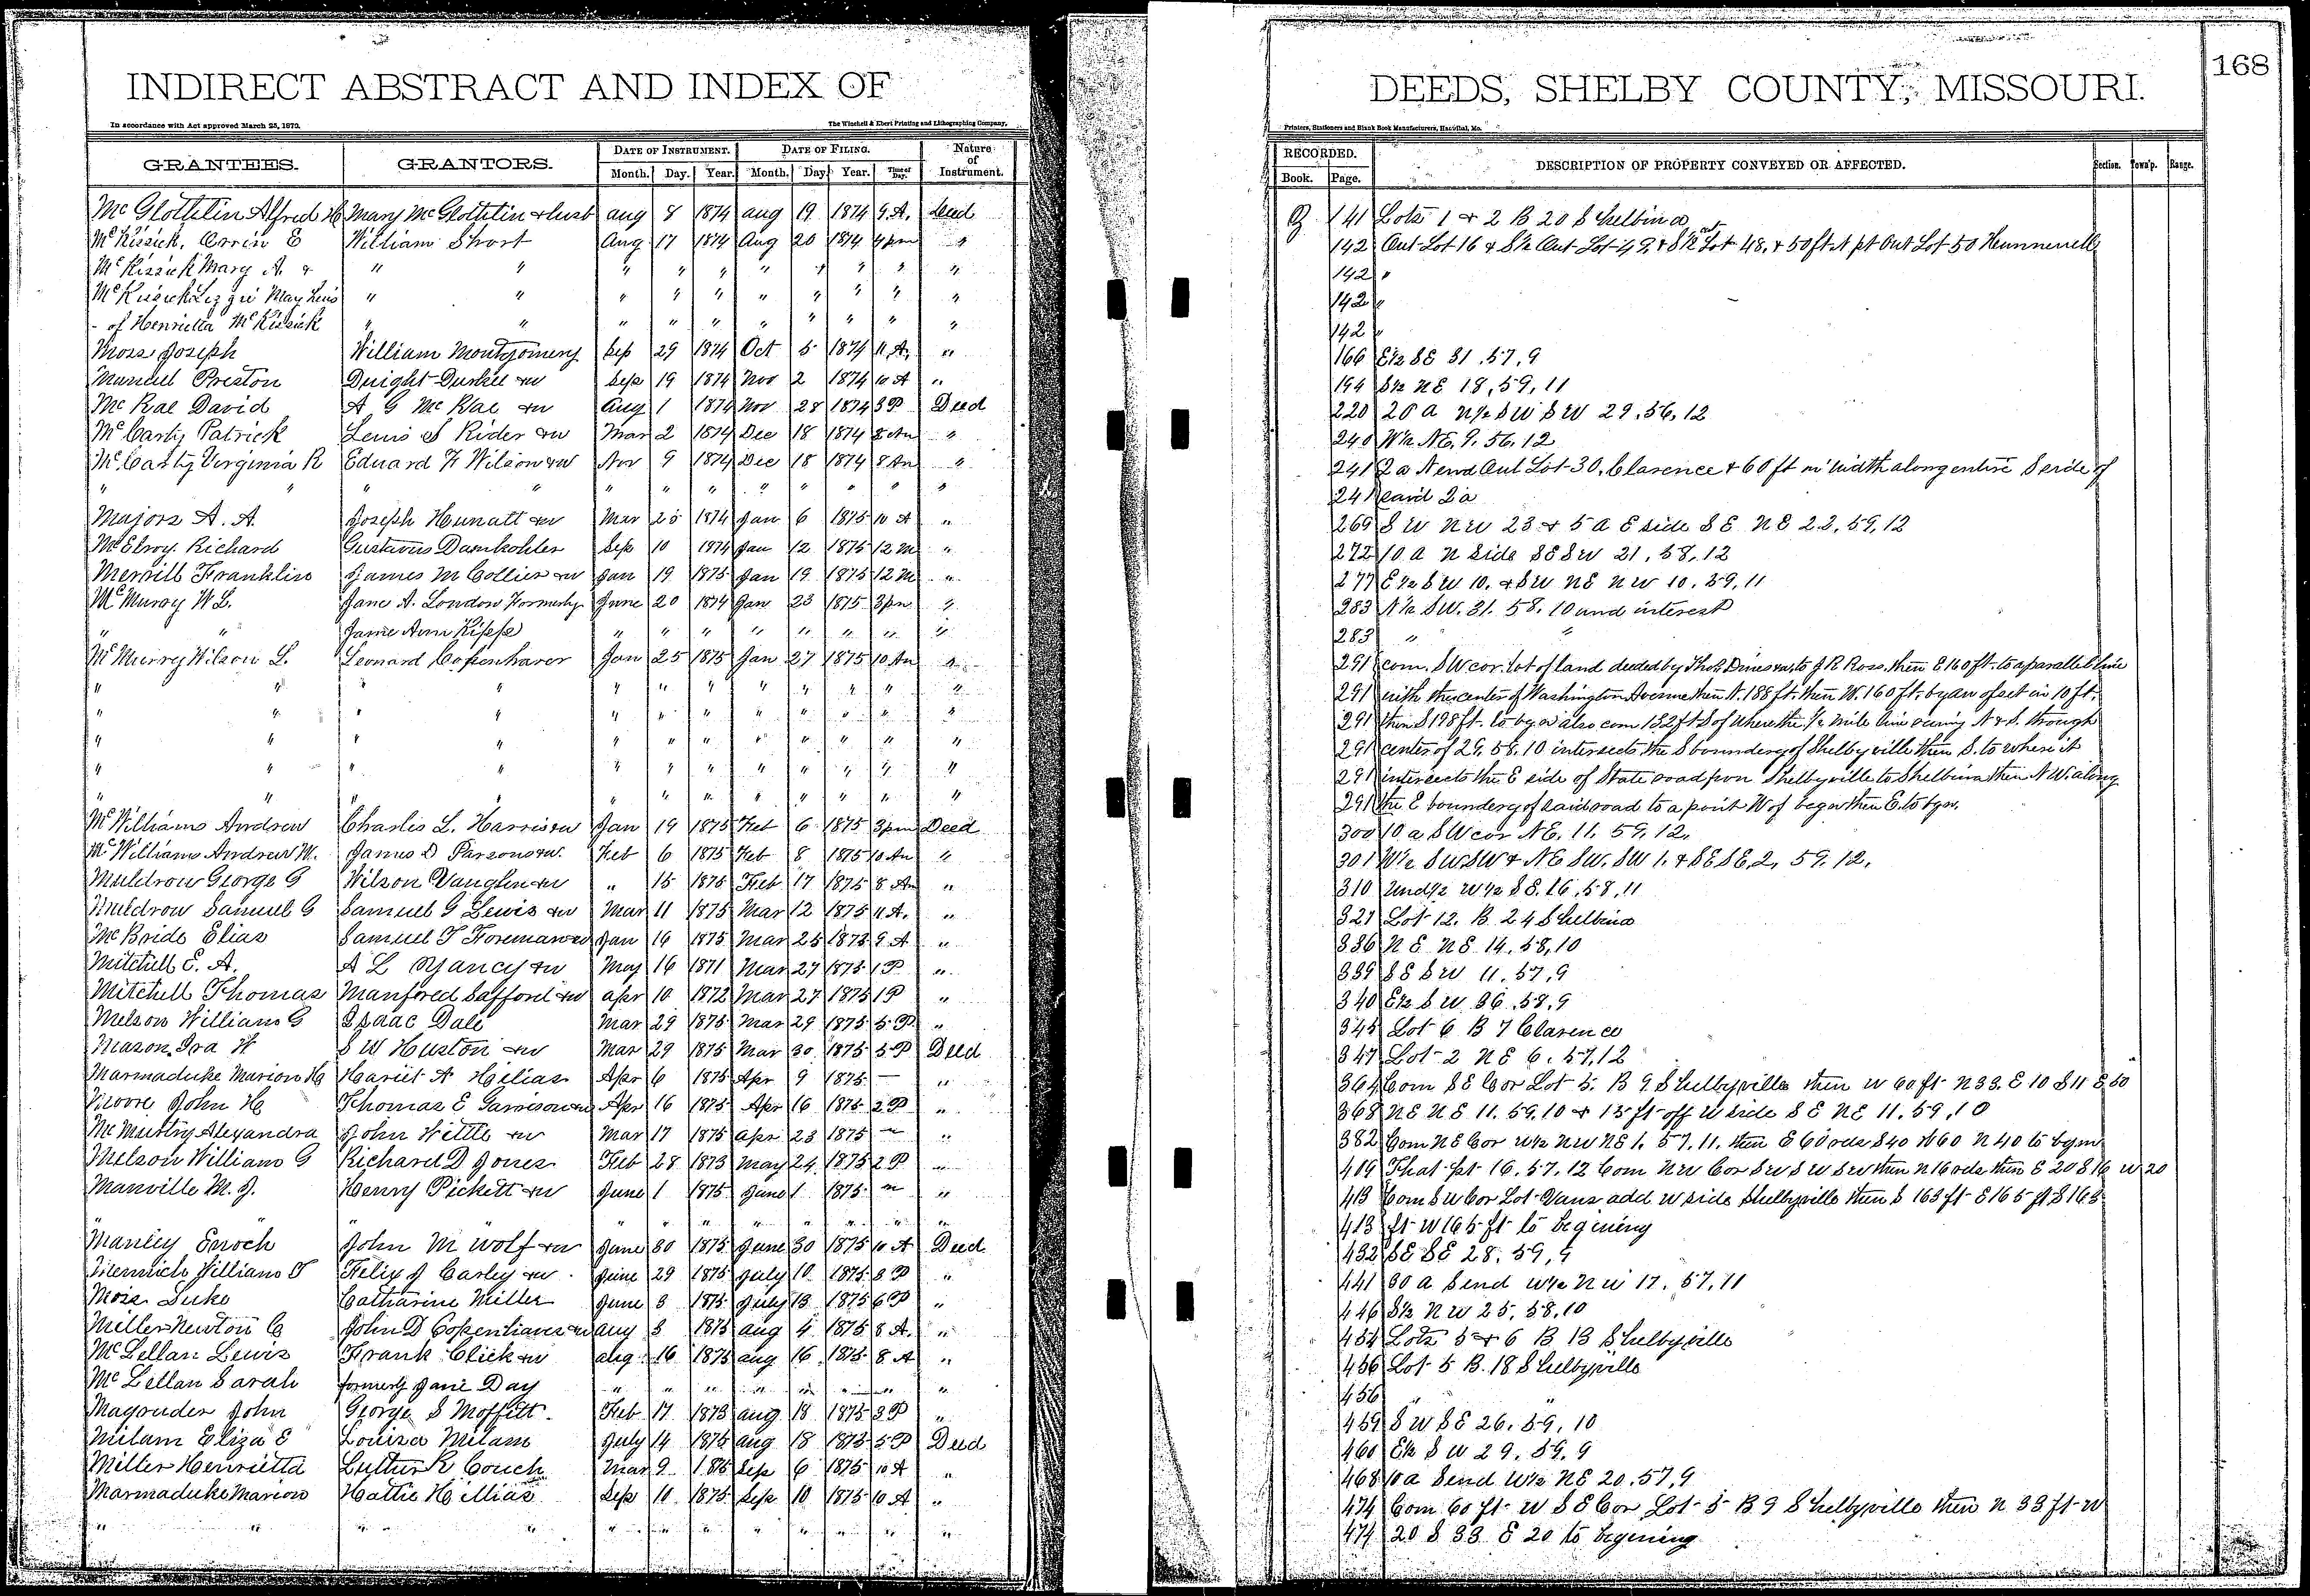 INDIRECT ABSTRACT AND INDEX OF
In accordance with Act approved March 25, 1879.
The Winchell & Ebert Printing and Lithographing Company,
GRANTEES. GRANTORS. DATE OF INSTRUMENT. DATE OF FILING. Nature of Instrument.
Month. Day. Year. Month. Day. Year. Time of Day.
McGlothlin Alfred H Mary McGlothlin & husb aug 8 1874 aug 19 1874 9 A. Deed
McKissick, Orrin E William Short Aug 17 1874 Aug 20 1874 4 pm "
McKissick Mary A. & " " " " " " " " " "
McKissick Lizzie May heirs " " " " " " " " " "
- of Henrietta McKissick " " " " " " " " " "
Moss Joseph William Montgomery Sep 29 1874 Oct 5 1874 11 A. "
Manuel Preston Dwight Duskee &w Sep 19 1874 Nov 2 1874 10 A "
McRae David A G McRae &w Aug 1 1874 Nov 28 1874 3 P Deed
McCarty Patrick Lewis S Rider &w Mar 2 1874 Dec 18 1874 8 Am "
McCarty Virginia R Edward F Wilson &w Nov 9 1874 Dec 18 1874 8 Am "
" " " " " " " " " " " "
Majors A. A. Joseph Hunatt &w Mar 25 1874 Jan 6 1875 10 A "
McElroy Richard Gustavus Damkohler Sep 10 1874 Jan 12 1875 12 M "
Merrill Franklin James M Collier &w Jan 19 1875 Jan 19 1875 12 M "
McMuray W L. Jane A. London Formerly June 20 1874 Jan 23 1875 3 pm "
" " Jane Ann Kipp " " " " " " " "
McMurrey Wilson L. Leonard Copenhaver Jan 25 1875 Jan 27 1875 10 Am "
" " " " " " " " " " " "
" " " " " " " " " " " "
" " " " " " " " " " " "
" " " " " " " " " " " "
" " " " " " " " " " " "
McWilliams Andrew Charles L. Harris &w Jan 19 1875 Feb 6 1875 3 pm Deed
McWilliams Andrew M. James D Parsons &w. Feb 6 1875 Feb 8 1875 10 Am "
Muldrow George G Wilson Vaughn &w " 15 1875 Feb 17 1875 8 Am "
Muldrow Samuel G Samuel G Lewis &w Mar 11 1875 Mar 12 1875 11 A. "
McBride Elias Samuel T Foreman &w Jan 16 1875 Mar 25 1875 9 A "
Mitchell E. A. A L Yancy &w May 16 1871 Mar 27 1875 1 P "
Mitchell Thomas Manfored Safford &w apr 10 1872 Mar 27 1875 1 P "
Melson William G Isaac Dale Mar 29 1875 Mar 29 1875 5 P. "
Mason Ira H S W Huston &w Mar 29 1875 Mar 30 1875 5 P Deed
Marmaduke Marion H Hariet A Helias Apr 6 1875 Apr 9 1875 — "
Moore John H Thomas E Garrison &w Apr 16 1875 Apr 16 1875 2 P "
McMurtry Alexandra John Wittle &w Mar 17 1875 apr 23 1875 "
Melson William G Richard D Jones Feb 28 1873 May 24 1875 2 P "
Manville M. J. Henry Pickett &w June 1 1875 June 1 1875 m "
" " " " " " " " " "
Manley Enoch John M Wolf &w June 30 1875 June 30 1875 10 A Deed
William T Felix J Carley &w June 29 1875 July 10 1875 3 P "
Moss Luke Catharine Miller June 3 1875 July 13 1875 6 P "
Miller Newton C John D Copenhaver &w aug 3 1875 aug 4 1875 8 A. "
McLellan Lewis Frank Click &w aug 16 1875 aug 16 1875 8 A "
McLellan Sarah formerly Jane Day " " " " " " " "
Magruder John George S Moffitt Feb 17 1873 aug 18 1875 3 P "
Milam Eliza E Louisa Milam July 14 1875 aug 18 1875 5 P Deed
Miller Henrietta Luther R Couch Mar 9 Sep 6 1875 10 A "
Marmaduke Marion Hattie H Elias Sep 10 1875 Sep 10 1875 10 A "
" " " " " " " " " " " "
DEEDS, SHELBY COUNTY, MISSOURI.
168
Printers, Stationers and Blank Book Manufacturers, Hannibal, Mo.
RECORDED. DESCRIPTION OF PROPERTY CONVEYED OR AFFECTED. Section. Town'p. Range.
Book. Page.
141 Lots 1 & 2 B 20 Shelbina
142 Out Lot 16 & S½ Out Lot 49 & S½ out Lot 48, & 50 ft N pt Out Lot 50 Hunnewell
142 "
142 "
142 "
166 E½ SE 31, 57, 9
194 S½ NE 18, 59, 11
220 20 a N½ SW SW 29, 56, 12
240 W½ NE, 9, 56, 12
241 2 a N end Out Lot 30, Clarence & 60 ft in width along entire S side of
241 said 2 a
269 SW NW 23 & 5 a E side SE NE 22, 59, 12
272 10 a N side SE SW 21, 58, 12
277 E½ SW 10, & SW NE NW 10, 59, 11
283 N½ SW. 31. 58, 10 und interest
283 " "
291 com. SW cor. lot of land deeded by Thos Dines &w, to J R Ross, then E 160 ft. to a parallel line
291 with the center of Washington Avenue then N. 188 ft. then W. 160 ft. by an ofset in 10 ft.
291 then S 198 ft. to bgn also com 132 ft S of where the ½ mile line runing N & S. through
291 center of 29, 58, 10 intersects the S boundery of Shelbyville then S. to where it
291 intersects the E side of State road from Shelbyville to Shelbina then NW. along
291 the E boundery of said road to a point W of begn then E. to bgn.
300 10 a SW cor NE. 11, 59, 12,
301 W½ SW SW & NE SW. SW 1, & SE SE, 2, 59, 12,
310 Und ½ W½ SE. 16, 58, 11
321 Lot 12. B 24 Shelbina
336 NE NE 14, 58, 10
339 SE SW 11, 57, 9
340 E½ SW 36, 58, 9
345 Lot 6 B 7 Clarence
347 Lot 2 NE 6, 57, 12
364 Com SE Cor Lot 5. B 9 Shelbyville then W 60 ft N 33, E 10 S 11 E 50
368 NE NE 11, 59, 10 & 15 ft off W side SE NE 11, 59, 10
382 Com NE Cor W½ NW NE 1, 57, 11, then E 60 rds S 40 W 60 N 40 to bgn
419 That pt 16, 57, 12 Com NW Cor SW SW SW then N 16 rds then E 20 S 16 W 20
413 Com SW Cor Lot Vans add W side Shelbyville then S 163 ft E 165 ft S 163
413 ft W 165 ft to begining
432 SE SE 28, 59, 9
441 30 a S end W½ NW 17, 57, 11
446 S½ NW 25, 58, 10
454 Lots 5 & 6 B 13 Shelbyville
456 Lot 5 B 18 Shelbyville
456 " "
459 SW SE 26, 59, 10
460 E½ SW 29, 59, 9
468 10 a S end W½ NE 20, 57, 9
474 Com 60 ft W SE Cor Lot 5 B 9 Shelbyville then N 33 ft W
474 20 S 33 E 20 to begining